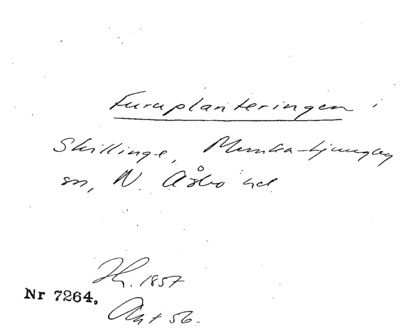 Furuplanteringen i
Skillinge, Munka-Ljungby
sn, N. Åsbo hd
1857
Nr 7264.
56.